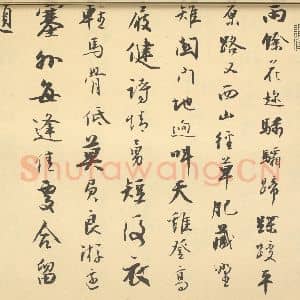 雨餘花趁騄驌蹄蹀躞平
原路又西山徑草肥藏墅
雉關門地迥叫天雞登高
屐健詩情勇短後衣
輕馬骨低莫負良游還
塞外每逢佳處合留
題
Shufawang.CN